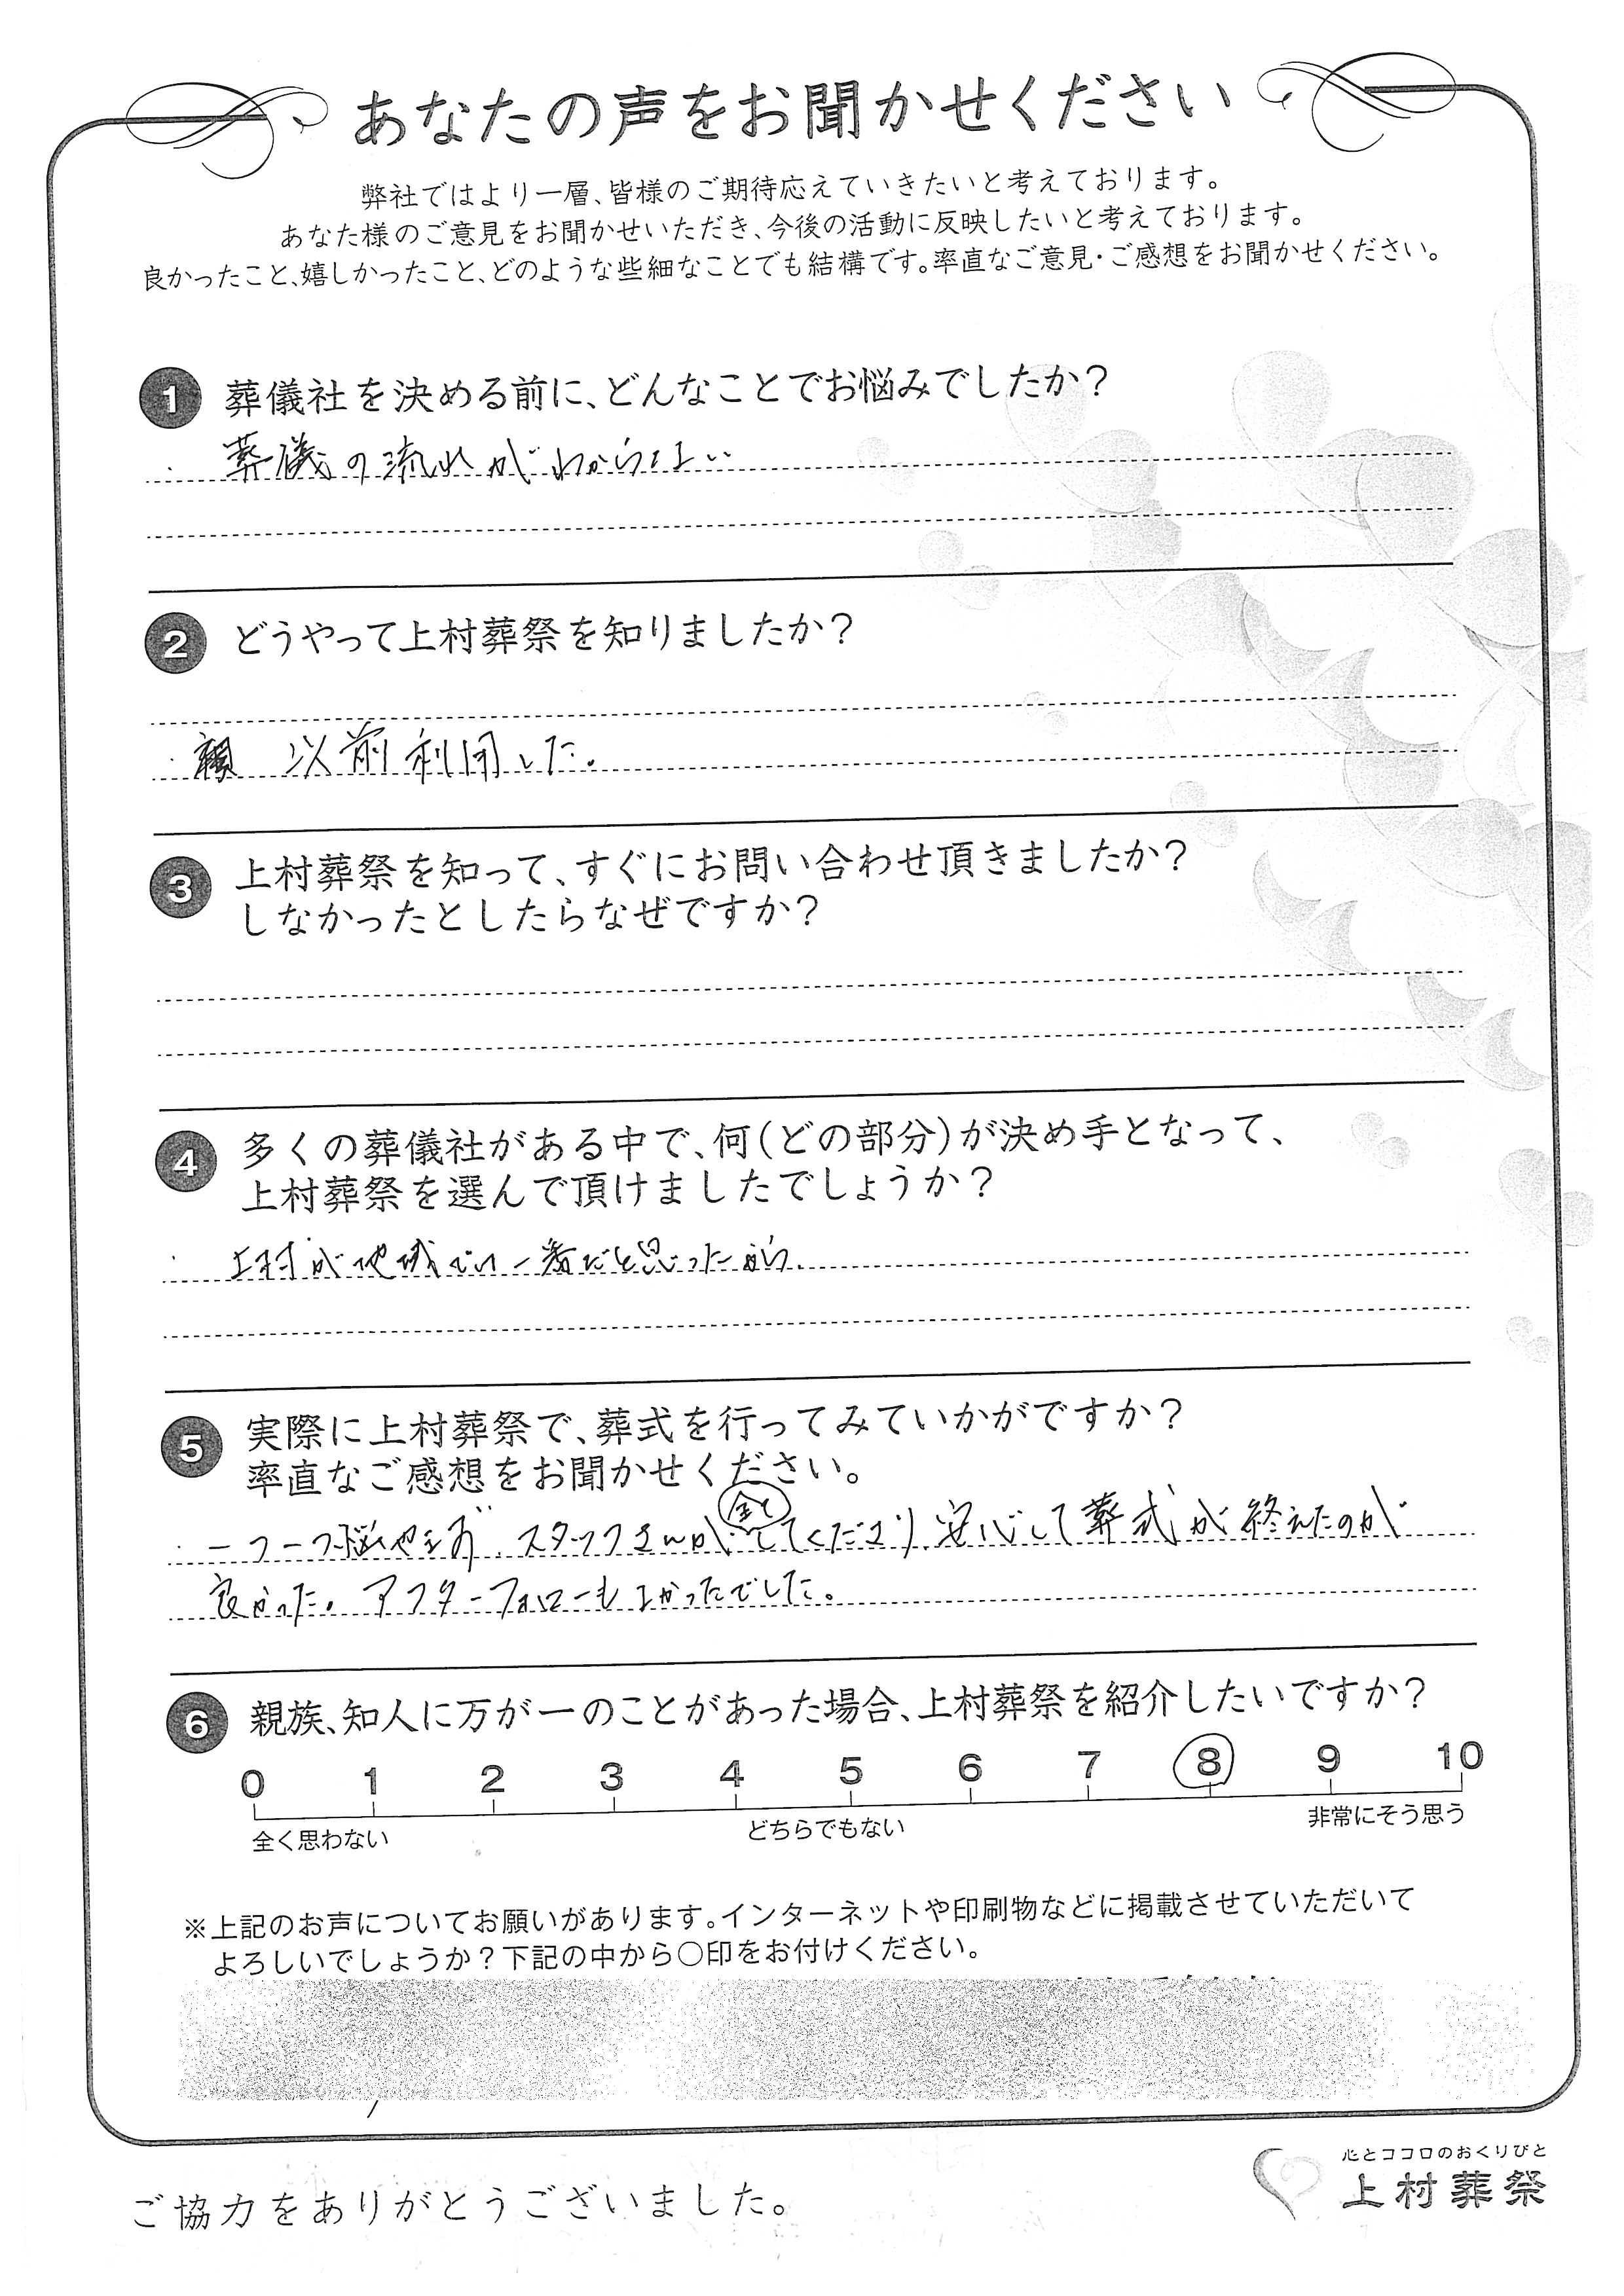 あなたの声をお聞かせください
弊社ではより一層、皆様のご期待応えていきたいと考えております。
あなた様のご意見をお聞かせいただき、今後の活動に反映したいと考えております。
良かったこと、嬉しかったこと、どのような些細なことでも結構です。率直なご意見・ご感想をお聞かせください。
1 葬儀社を決める前に、どんなことでお悩みでしたか？
葬儀の流れがわからない
2 どうやって上村葬祭を知りましたか？
親 以前利用した。
3 上村葬祭を知って、すぐにお問い合わせ頂きましたか？
しなかったとしたらなぜですか？
4 多くの葬儀社がある中で、何（どの部分）が決め手となって、
上村葬祭を選んで頂けましたでしょうか？
上村が地域で一番だと思ったから
5 実際に上村葬祭で、葬式を行ってみていかがですか？
率直なご感想をお聞かせください。
一つ一つ悩やまず、スタッフさんが全てしてくださり、安心して葬式が終えたのが
良かった。アフターフォローもよかったでした。
6 親族、知人に万が一のことがあった場合、上村葬祭を紹介したいですか？
0 1 2 3 4 5 6 7 8 9 10
全く思わない どちらでもない 非常にそう思う
※上記のお声についてお願いがあります。インターネットや印刷物などに掲載させていただいて
よろしいでしょうか？下記の中から〇印をお付けください。
心とココロのおくりびと
上村葬祭
ご協力をありがとうございました。